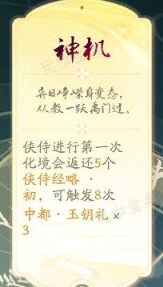 神机
弃目峥嵘身变态，
从教一跃禹门过。
侠侍进行第一次
化境会返还5个
侠侍经略·
初，可触发8次
中都·玉钥礼×
3